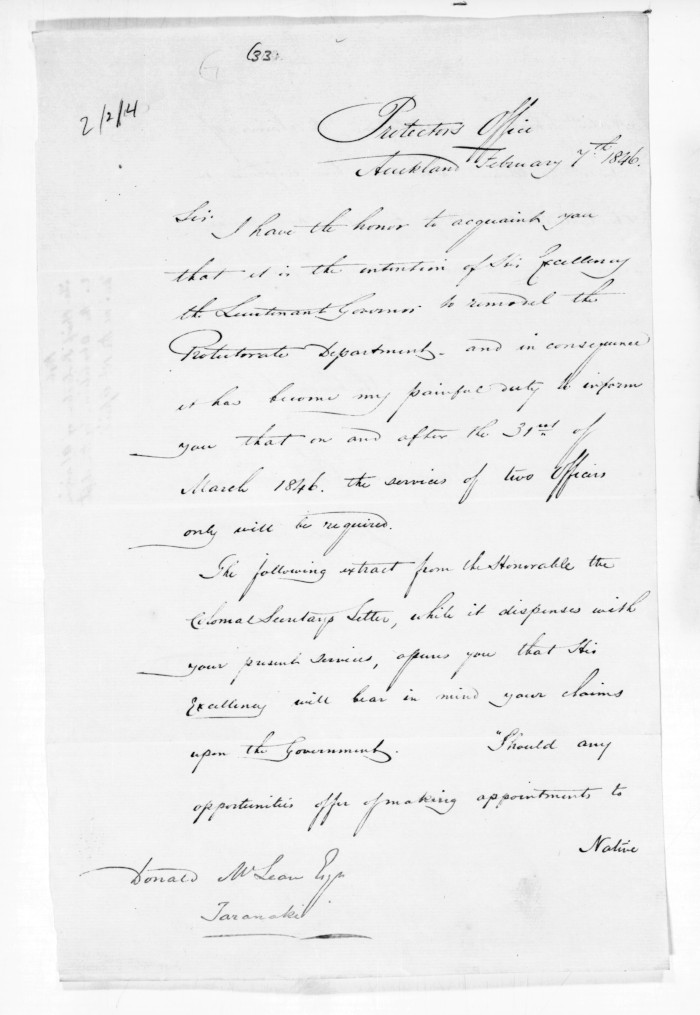 (33)
2/2/14
Protectors Office
Auckland February 7th 1846.
Sir.
I have the honor to acquaint you
that it is the intention of His Excellency
the Lieutenant Governor to remodel the
Protectorate Department - and in consequence
it has become my painful duty to inform
you that on and after the 31rst of
March 1846. the services of two Officers
only will be required.
The following extract from the Honorable the
Colonial Secretarys Letter, while it dispenses with
your present services, assures you that His
Excellency will bear in mind your claims
upon the Government. "Should any
opportunities offer of making appointments to
Native
Donald McLean Esqr
Taranaki